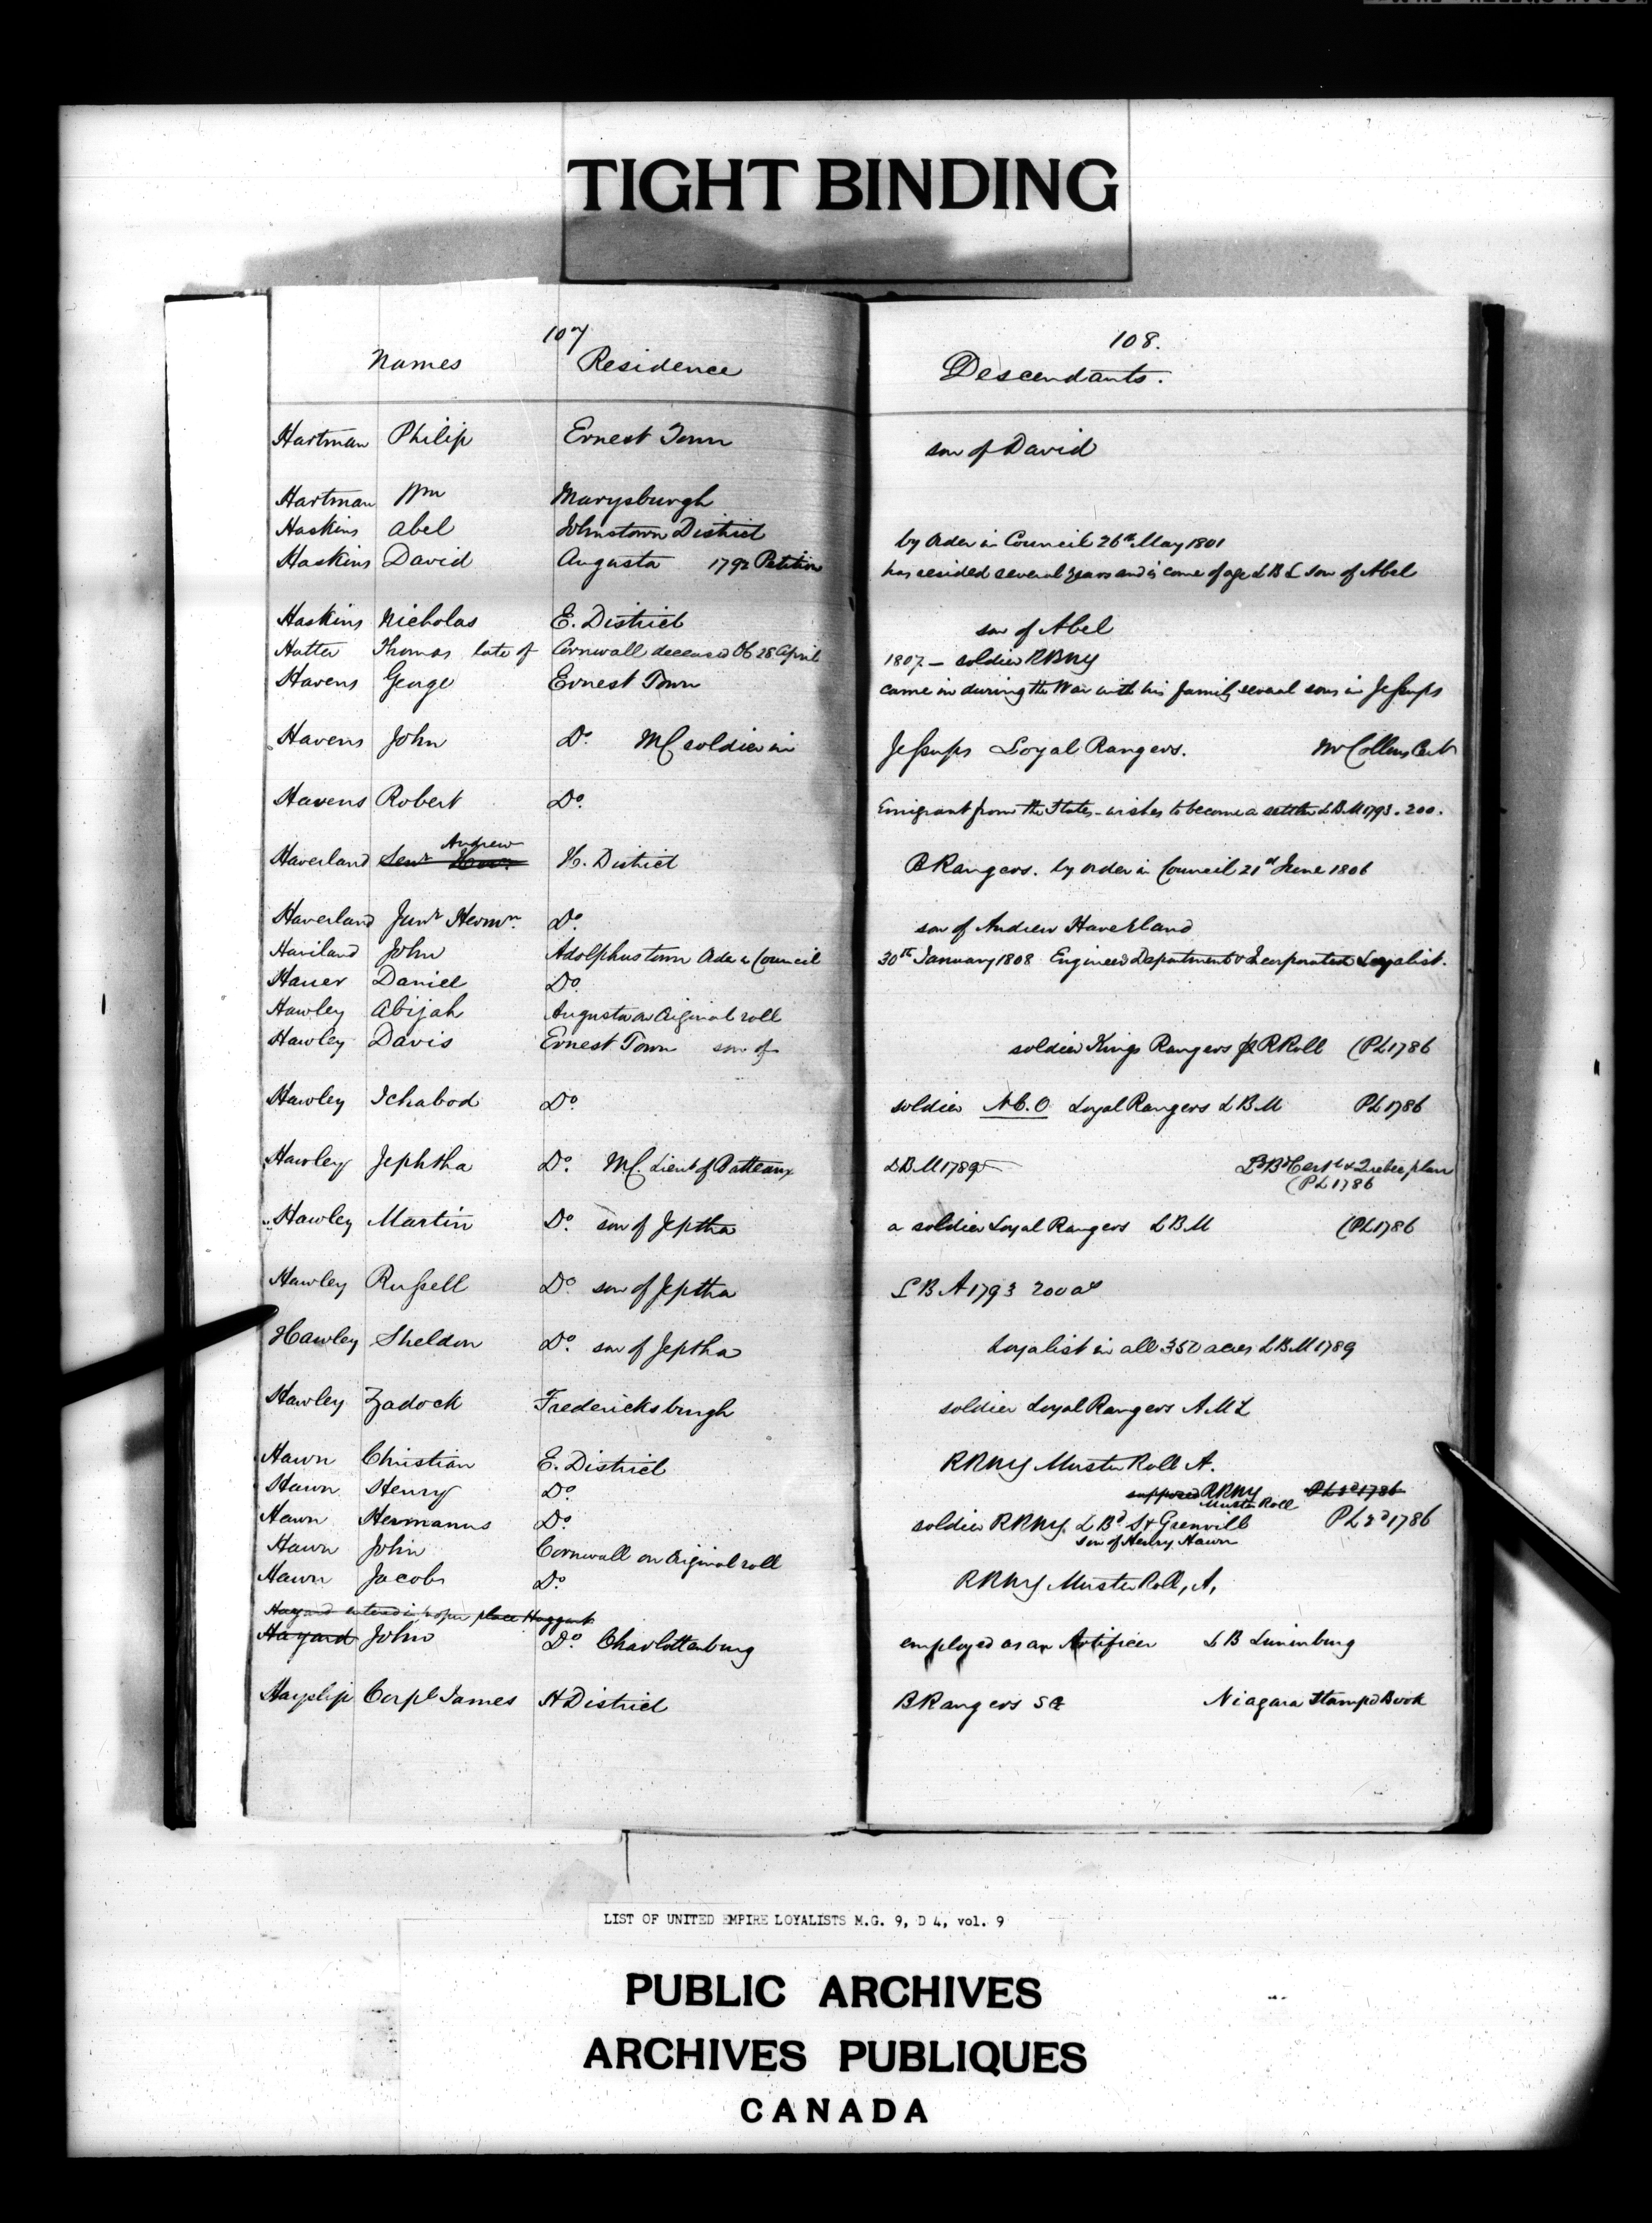 TIGHT BINDING
107
Names Residence
108.
Descendants.
Hartman Philip Ernest Town son of David
Hartman Wm Marysburgh
Haskins Abel Johnstown District by Order in Council 26th May 1801
Haskins David Augusta 1792 Petition has resided several years and is come of age LBL son of Abel
Haskins Nicholas E. District son of Abel
Hatter Thomas late of Cornwall deceased Ob 28 April 1807 – soldier RRNY
Havens George Ernest Town came in during the War with his family several sons in Jessups
Havens John Do. MC soldier in Jessups Loyal Rangers. Mr Collins Cert
Havens Robert Do. Emigrant from the States – wishes to become a settler LBM 1793. 200.
Andrew
Haverland Senr H. District B Rangers. by Order in Council 21st June 1806
Haverland Junr Hermn. Do. son of Andrew Haverland
Haviland John Adolphustown Order in Council 30th January 1808 Engineer Department & Incorporated Loyalist.
Hauer Daniel Do.
Hawley Abijah Augusta on Original roll
Hawley Davis Ernest Town son of soldier Kings Rangers R Roll (PL 1786
Hawley Ichabod Do. soldier N.C.O Loyal Rangers LBM PL 1786
Hawley Jephtha Do. MC Lieut of Batteaux LBM 1789 LBd Cert & Quebec plan
(PL 1786
Hawley Martin Do. son of Jeptha a soldier Loyal Rangers LBM (PL 1786
Hawley Russell Do. son of Jeptha LB A 1793 200 as
Hawley Sheldon Do. son of Jeptha Loyalist in all 350 acres LBM 1789
Hawley Zadock Fredericksburgh soldier Loyal Rangers AML
Hawn Christian E. District RRNY Muster Roll A.
Hawn Henry Do. supposed RRNY PL 2d 1786
Muster Roll
Hawn Hermanus Do. soldier RRNY. LBd St Grenvill PL 2d 1786
son of Henry Hawn
Hawn John Cornwall on Original roll
Hawn Jacob Do. RRNY Muster Roll, A,
Hayard entered in proper place Haggart
Hayard John Do. Charlottenburg employed as an Artificer LB Lunenburg
Hayslip Corpl James H District B Rangers SG Niagara Stamped Book
LIST OF UNITED EMPIRE LOYALISTS M.G. 9, D 4, vol. 9
PUBLIC ARCHIVES
ARCHIVES PUBLIQUES
CANADA